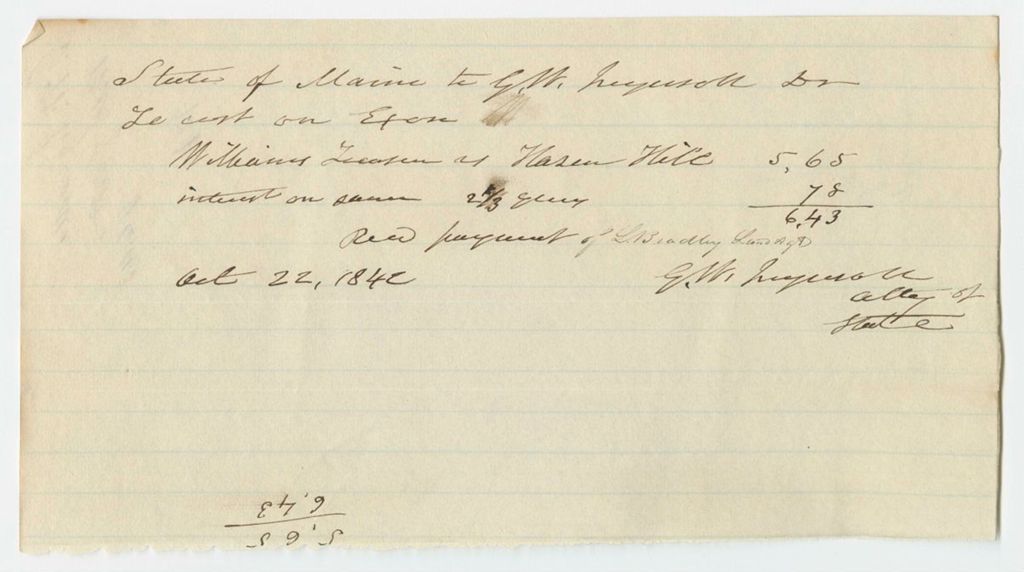 State of Maine to G.W. Ingersoll Dr
To cost on Exon
Williams Treasr vs Hasen Hill 5,65
interest on same 2 1/3 years 78
6,43
Recd payment of L. Bradley Land Agt
Oct 22, 1842 G.W. Ingersoll
Atty of
State
6,43
5,65